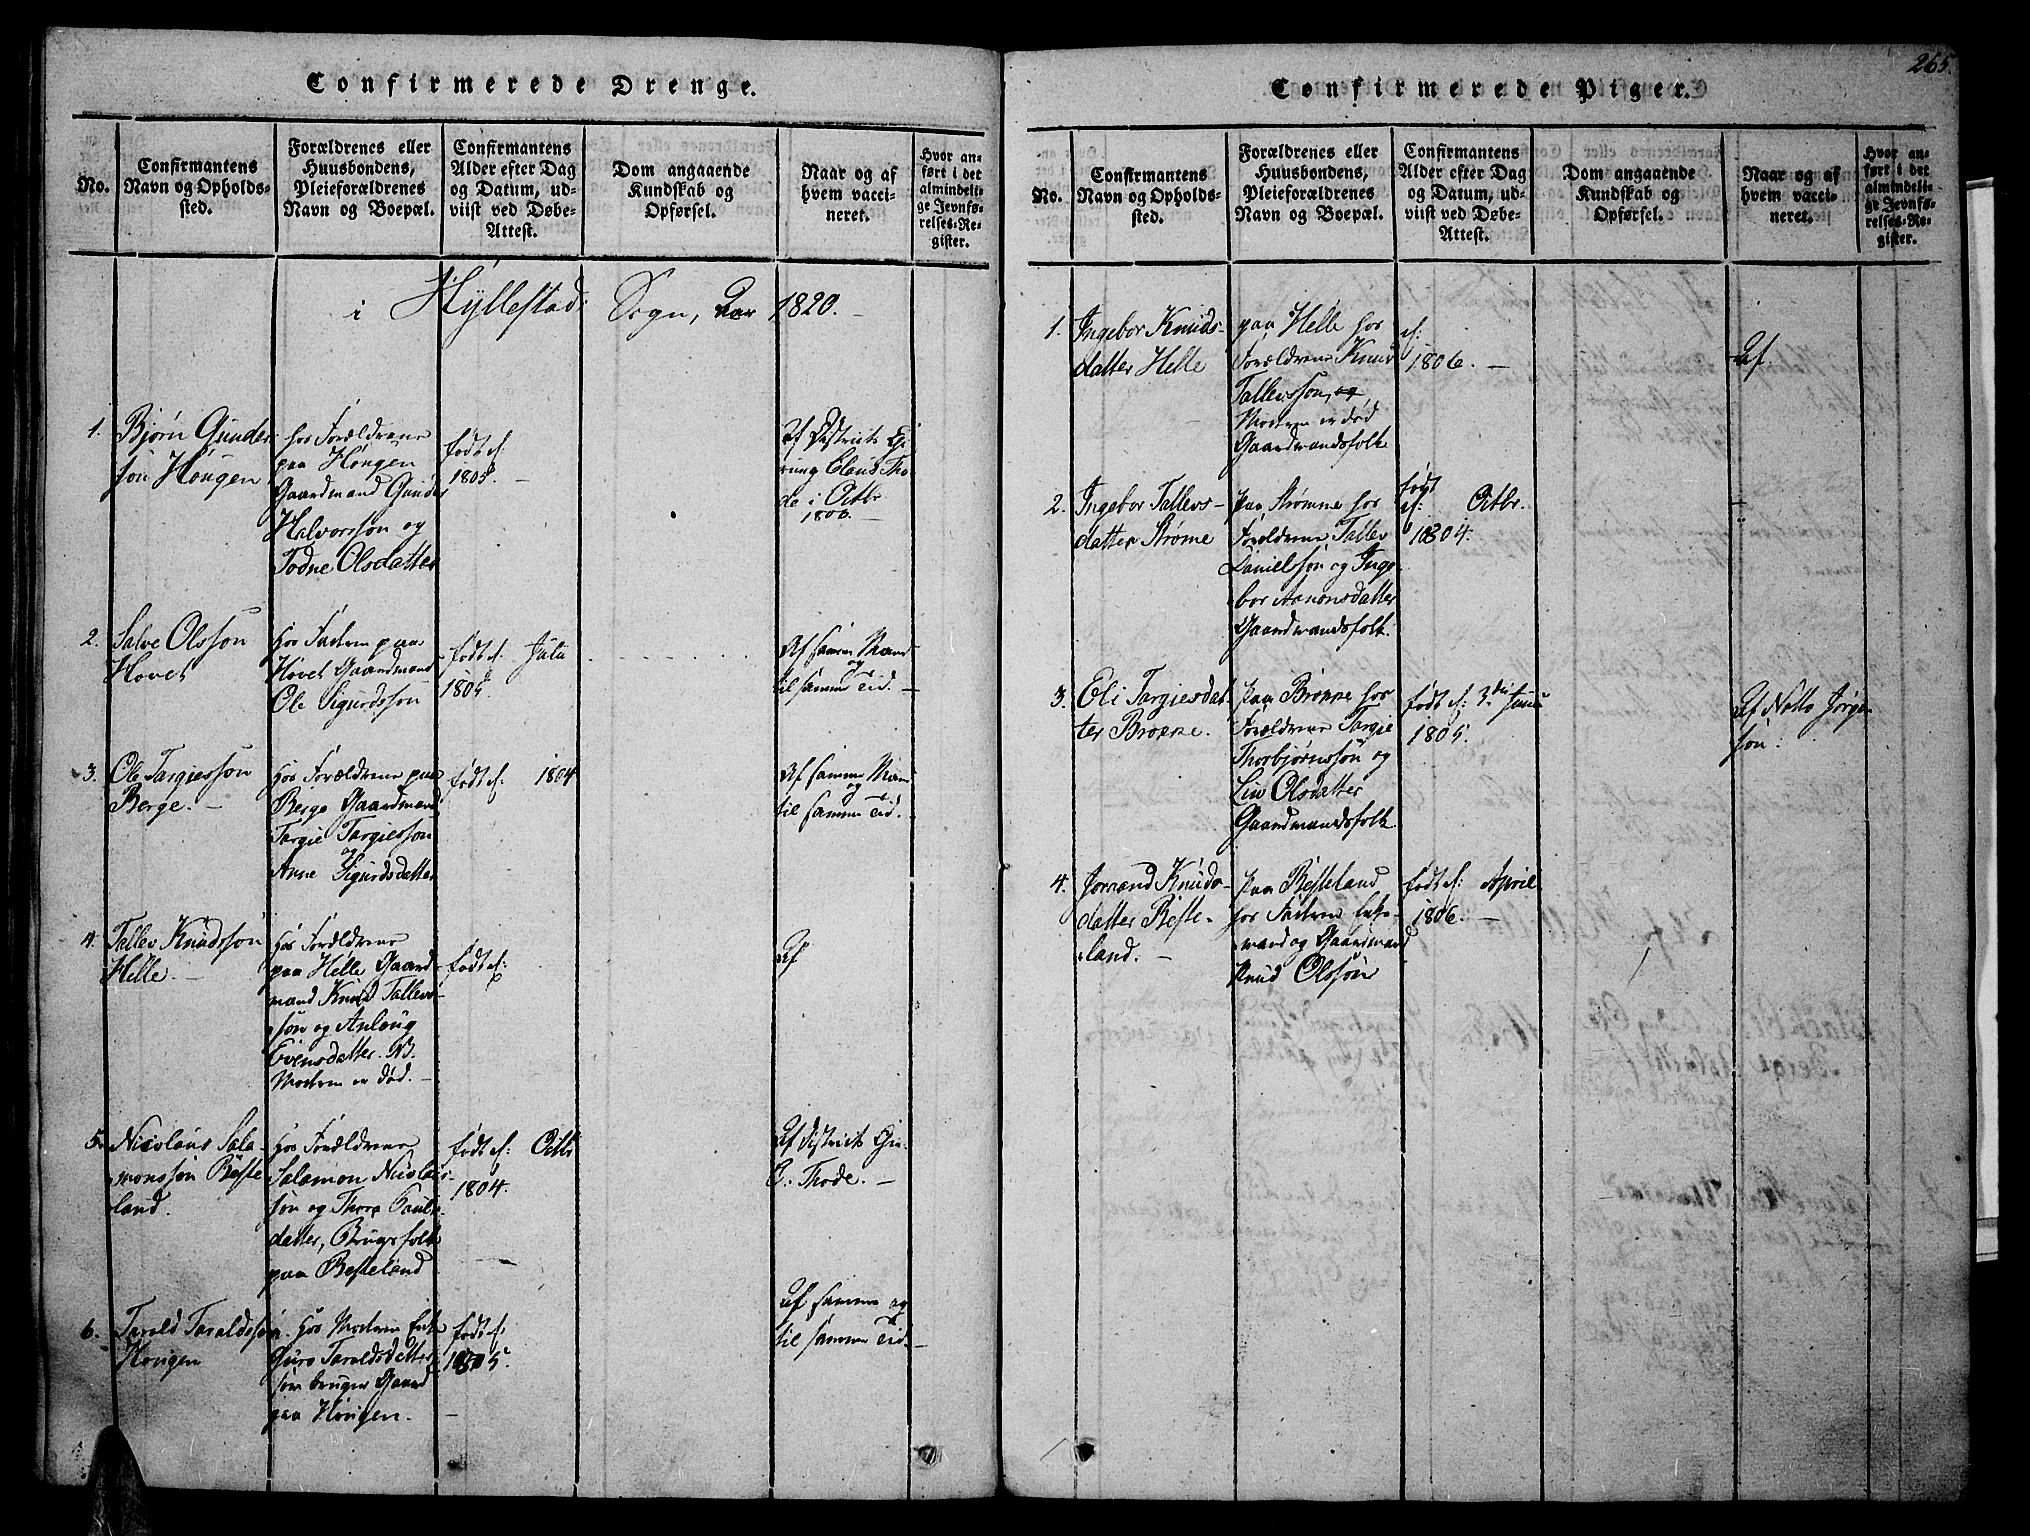 Confirmerede Drenge.
No.
Confirmantens
Navn og Opholds-
sted.
Forældrenes eller
Huusbondens,
Pleieforældrenes
Navn og Boepæl.
Confirmantens
Alder efter Dag
og Datum, ud-
viist ved Døbe-
Attest.
Dom angaaende
Kundskab og
Opførsel.
Naar og af
hvem vacci-
neret.
Hvor an-
ført i det
almindeli-
ge Jevnfø-
relses-Re-
gister.
i Hyllestad Sogn, Aar 1820.
1.
Bjørn Gunder
søn Hougen
hos Forældrene
paa Hougen
Gaardmand Gunder
Halvorssøn og
Todne Olsdatter
født
1805.
Af Districts
Claus Tho-
de i Octbr
1806.
2.
Salve Olssøn
Hovet
hos Faderen paa
Hovet Gaardmand
Ole Sigurdssøn
født
1805.
Af samme Mand
og
til samme Tid.
3.
Ole Targiessøn
Berge.
hos Forældrene paa
Berge Gaardmand
Targie Targiessøn
og
Anne Sigurdsdatter
født 1804
Af samme Mand
og
til samme Tid.
4.
Tallev Knudssøn
Helle.
hos Forældrene
paa Helle Gaard-
mand Knud Tallevs-
søn og Anlaug
Evensdatter. NB.
Moderen er død.
født
Af
5.
Nicolaus Sala-
monssøn Beste
land.
hos Forældrene
Salamon Nicolaus-
søn og Thora Pauls-
datter, Brugsfolk
paa Besteland
født Octbr
1804.
Af Districts
C. Thode.
6.
Tarald Taraldssøn
Hougen
hos Moderen Enke
Guro Taraldsdatter
som bruger Gaard
paa Hougen.
født
1805
Af samme og
til samme Tid.
Confirmerede Piger.
265.
No.
Confirmantens
Navn og Opholds-
sted.
Forældrenes eller
Huusbondens,
Pleieforældrenes
Navn og Boepæl.
Confirmantens
Alder efter Dag
og Datum, ud-
viist ved Døbe-
Attest.
Dom angaaende
Kundskab og
Opførsel.
Naar og af
hvem vacci-
neret.
Hvor an-
ført i det
almindelig-
ge Jevnfø-
relses-Re-
gister.
1.
Ingebor Knuds-
datter Helle
paa Helle hos
Forældrene Knud
Tallevssøn, og
Moderen er død
Gaardmandsfolk
1806.
Af
2.
Ingebor Tallevs-
datter Strøme
paa Strømme hos
Forældrene Tallev
Danielssøn og Inge
bor Aanonsdatter
Gaardmandsfolk.
født
Octbr.
1804.
3.
Eli Targiesdat-
ter Brønne.
paa Brønne hos
Forældrene Targie
Thorbjørnssøn og
Liv Olsdatter
Gaardmandsfolk
født 3die
1805.
Af Jørgen-
søn.
4.
Jorand Knuds-
datter Beste-
land.
paa Besteland
hos Faderen Enke-
mand og Gaardmand
Knud Olssøn
født April
1806.